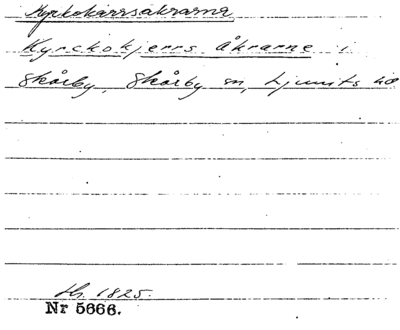 Kyrkokärrsåkrarna
Kyrckokjerrs åkrarne i
Skårby, Skårby sn, Ljunits hd
Hr. 1825.
Nr 5666.